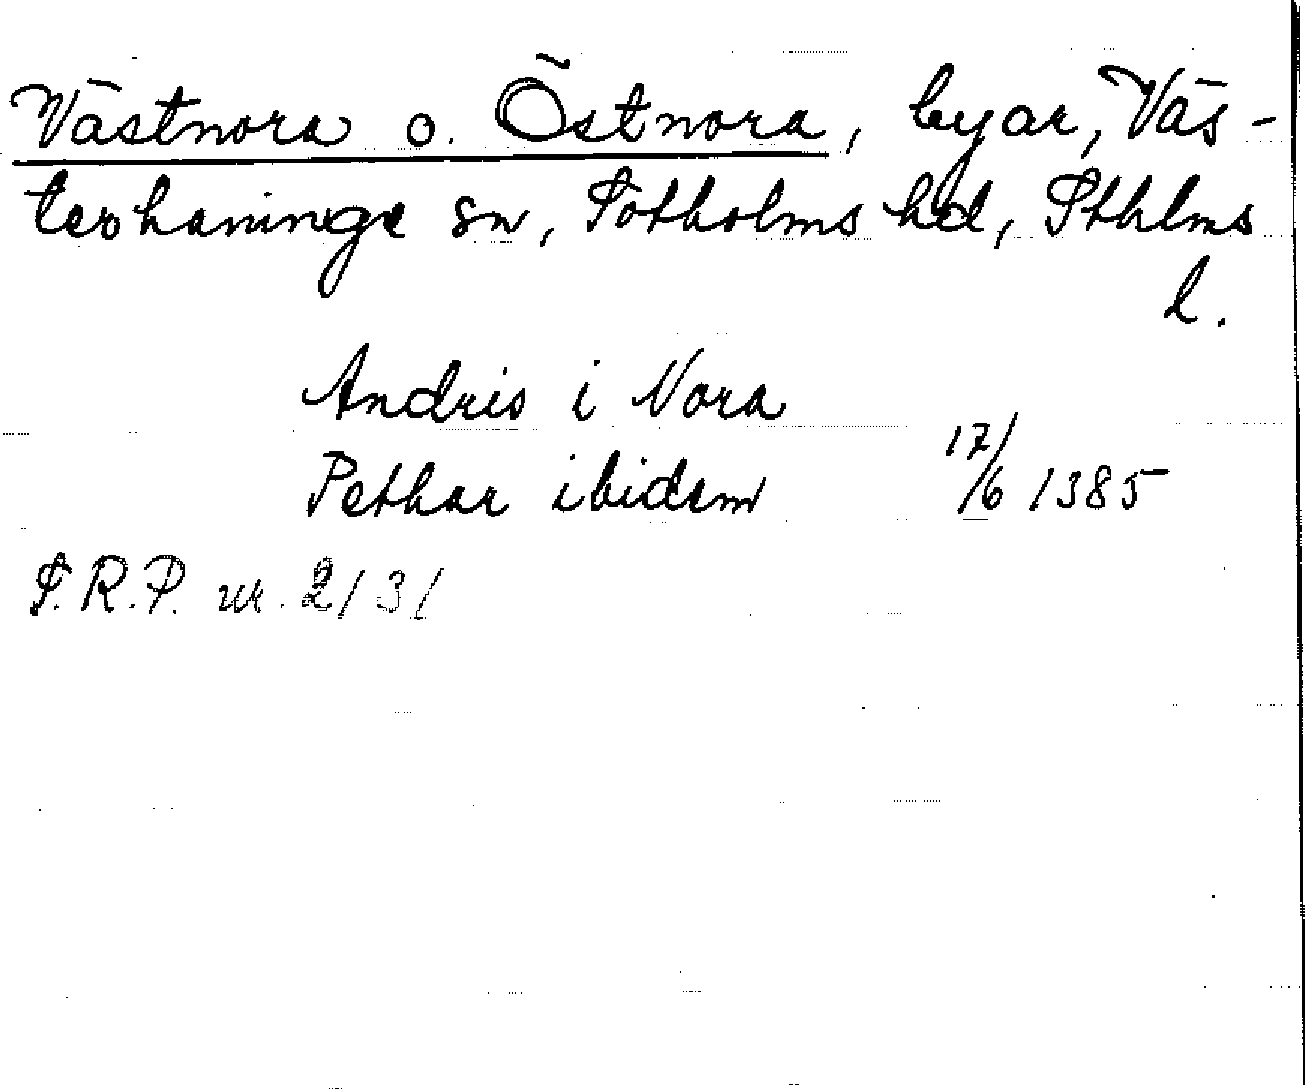 Västnora o. Östnora, byar, Väs-
terhaninge sn, Sotholms hd, Sthlms
l.
Andris i Nora
Pethar ibidem 17/6 1385
S.R.P. nr. 2131